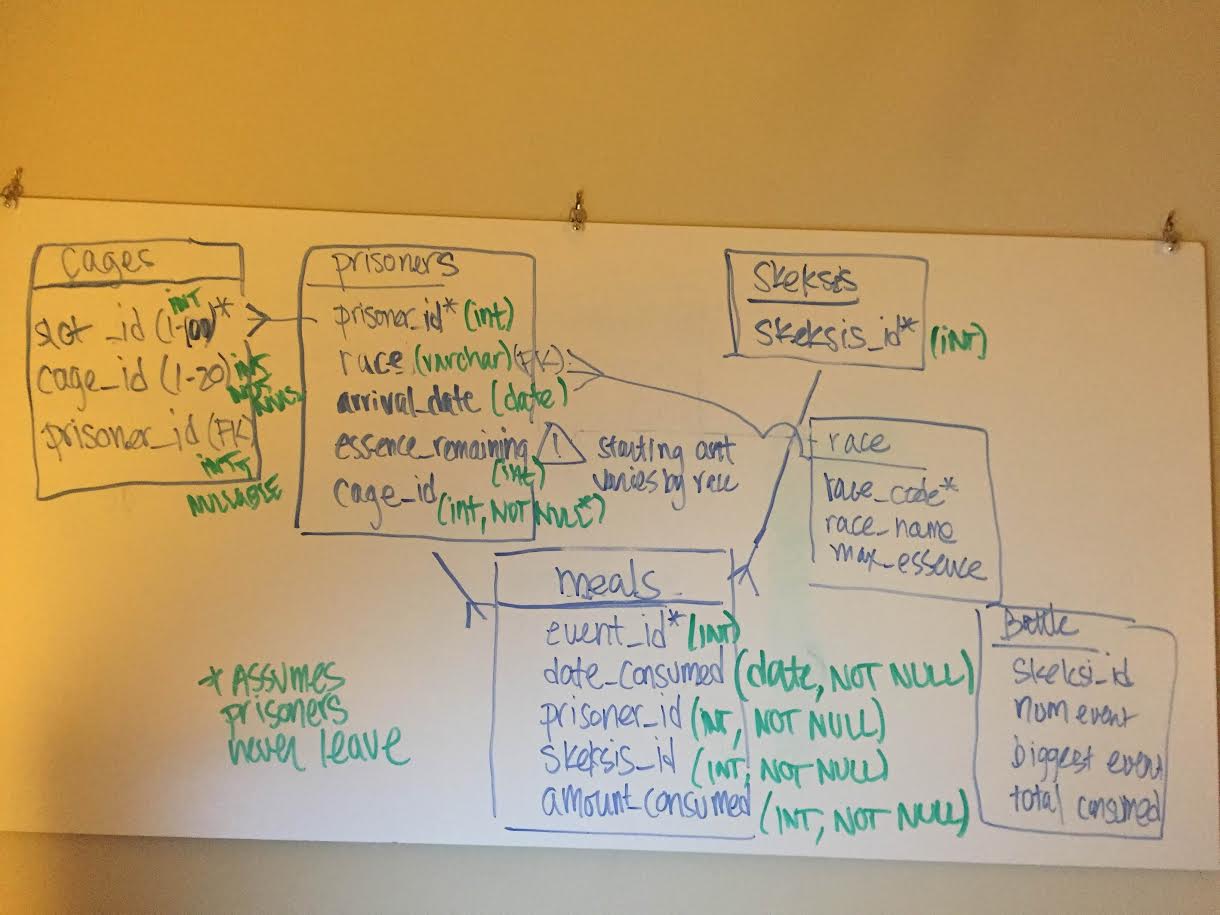 cages
slot_id (1-100)*
INT
cage_id (1-20) INT
NOT
NULL
prisoner_id (FK)
INT,
NULLABLE
prisoners
prisoner_id* (int)
race (varchar) (FK)
arrival_date (date)
essence_remaining
(int)
cage_id
(int, NOT NULL*)
! starting amt
varies by race
Skeksis
skeksis_id* (INT)
race
race_code*
race_name
max_essence
meals
event_id* (INT)
date_consumed (date, NOT NULL)
prisoner_id (INT, NOT NULL)
skeksis_id (INT, NOT NULL)
amount_consumed (INT, NOT NULL)
Bottle
skeksi_id
num event
biggest event
total consumed
* Assumes
prisoners
never leave